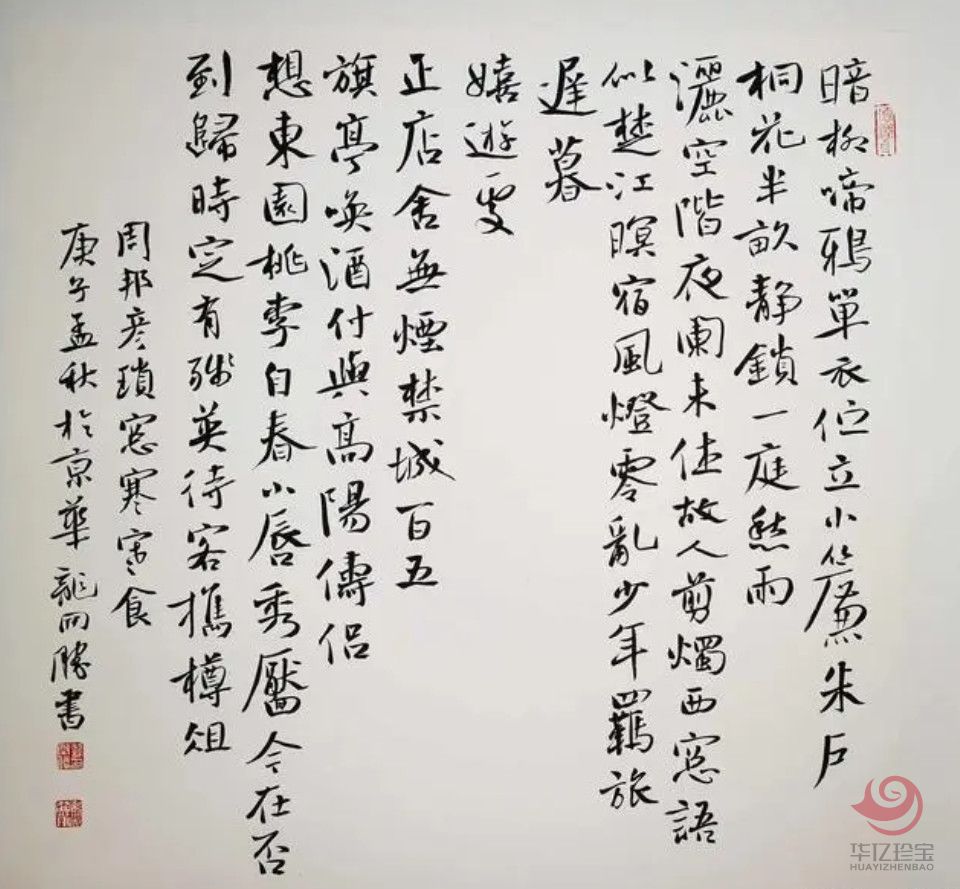 暗柳啼鴉單衣伫立小簾朱户
桐花半畝静鎖一庭愁雨
灑空階夜闌未休故人剪燭西窓語
似楚江暝宿風燈零亂少年羈旅
遲暮
嬉遊處
正店舍無煙禁城百五
旗亭喚酒付與高陽儔侣
想東園桃李自春小唇秀靨今在否
到歸時定有殘英待客攜樽俎
周邦彦瑣窓寒寒食
庚子孟秋於京華龍開勝書
华亿珍宝
HUAYIZHENBAO